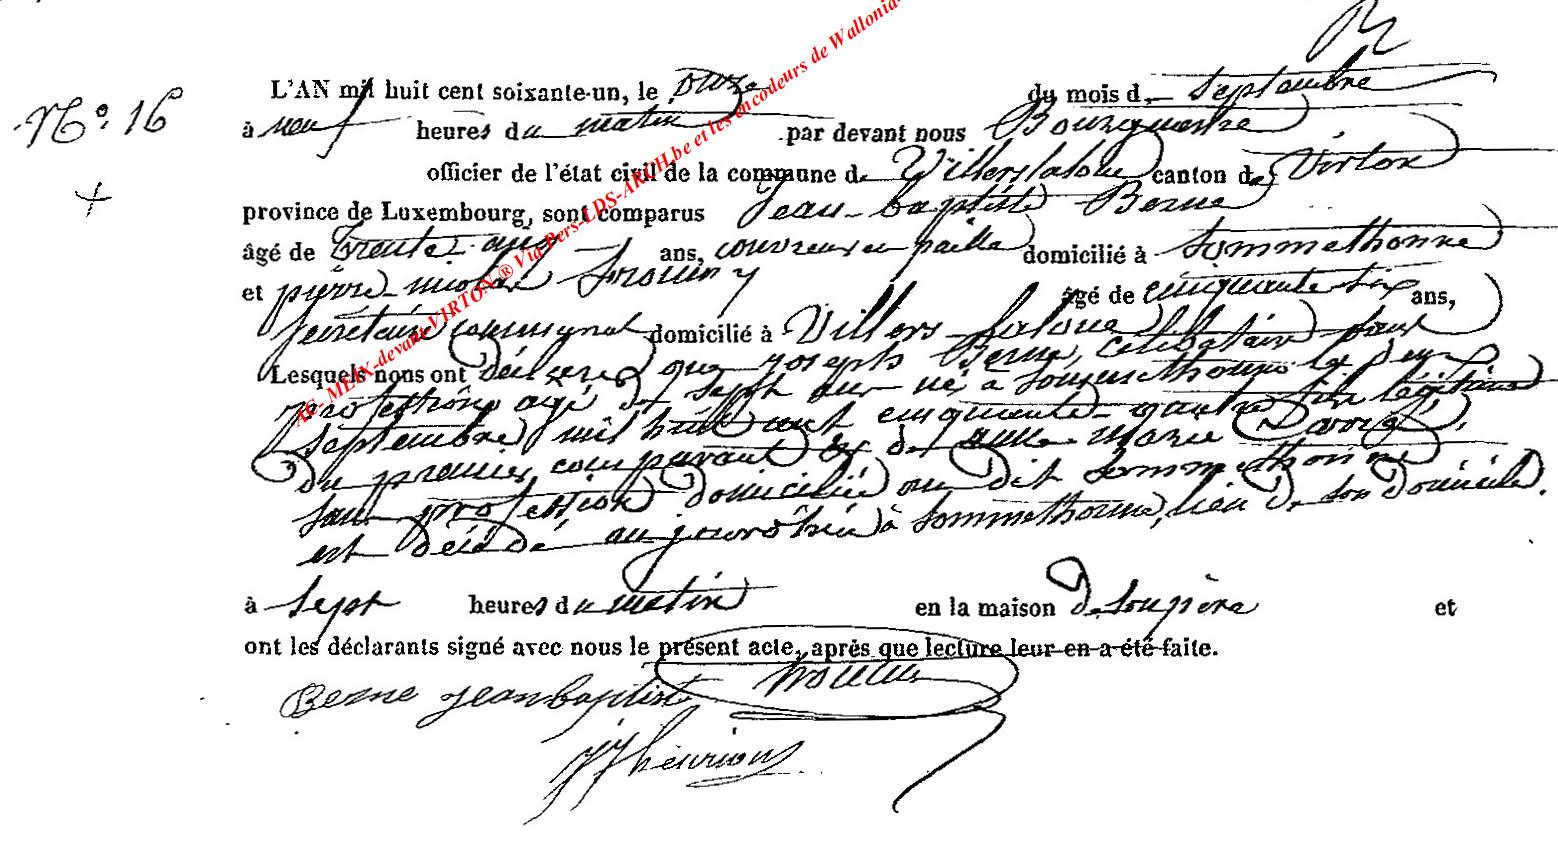 N° 16
L'AN mil huit cent soixante-un, le onze du mois de septembre
à neuf heures du matin par devant nous Bourguemestre
officier de l'état civil de la commune de Villerslaloue canton de Virton
province de Luxembourg, sont comparus Jean-baptiste Berne
âgé de trente ans, couvreur en paille domicilié à Sommethonne
et pierre-nicolas âgé de cinquante six ans,
secrétaire communal domicilié à Villers-laloue
Lesquels nous ont déclaré que joseph Berne, célibataire sans
profession agé de sept ans né à Sommethonne le dix
septembre mil huit cent cinquante-quatre fils légitime
du premier comparant & de anne marie
sans profession domiciliée au dit Sommethonne
est décédé aujourd'hui à Sommethonne, lieu de son domicile.
à sept heures du matin en la maison de son père et
ont les déclarants signé avec nous le présent acte, après que lecture leur en a été faite.
Berne jean baptiste
henrion
AC_MEIX-devant-VIRTON ® Via Pers-LDS-ARCH.be et les encodeurs de Wallonia-